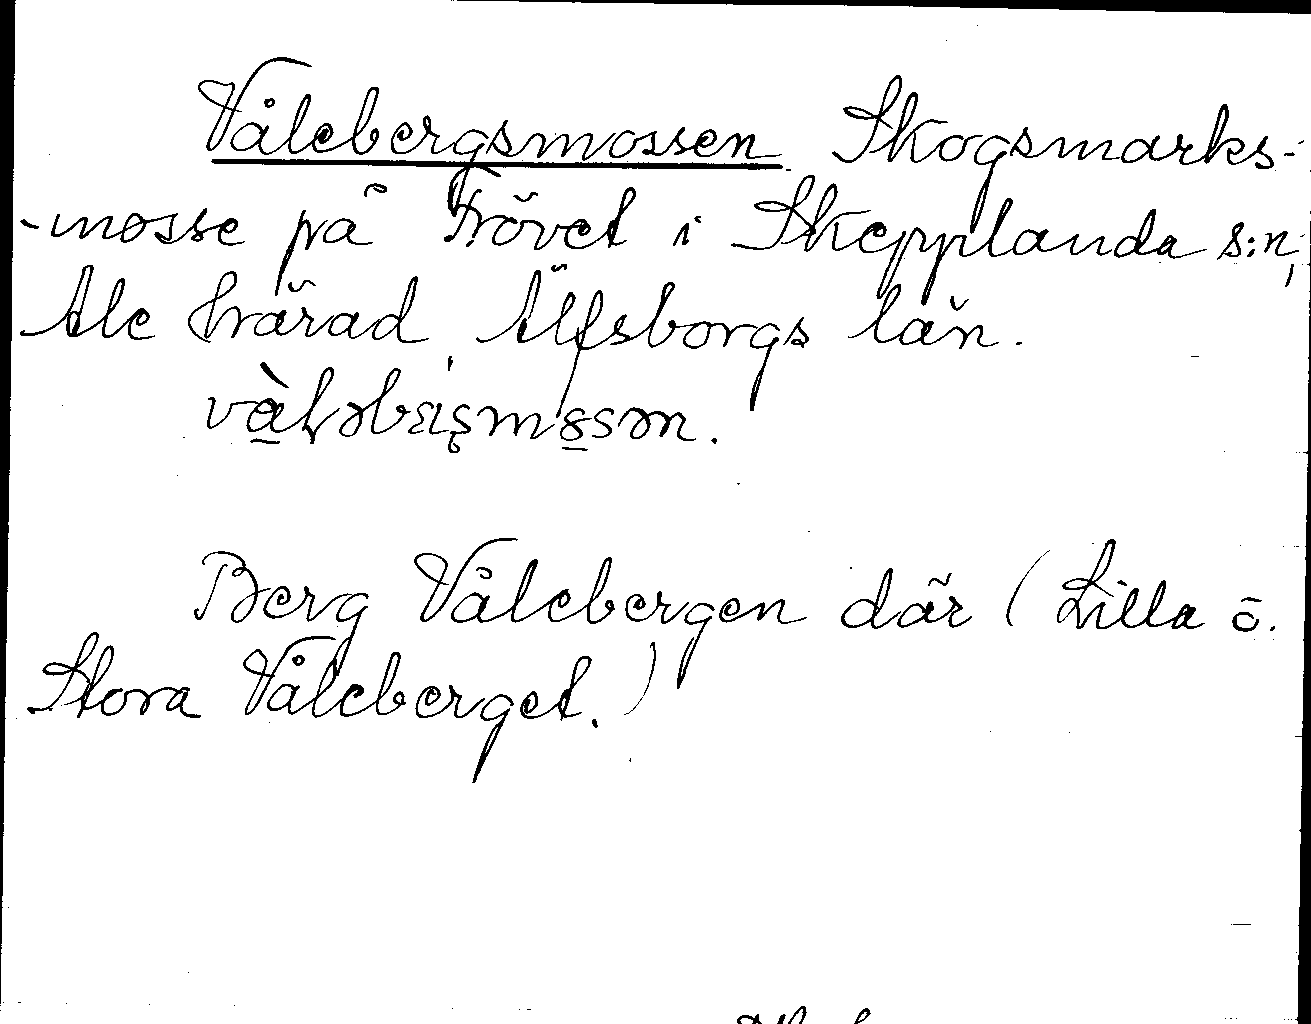 Vålebergsmossen Skogsmarks-
-mosse på Frövet i Skepplanda s:n,
Ale härad, Älfsborgs län.
Berg Vålebergen där (Lilla o.
Stora Våleberget.)